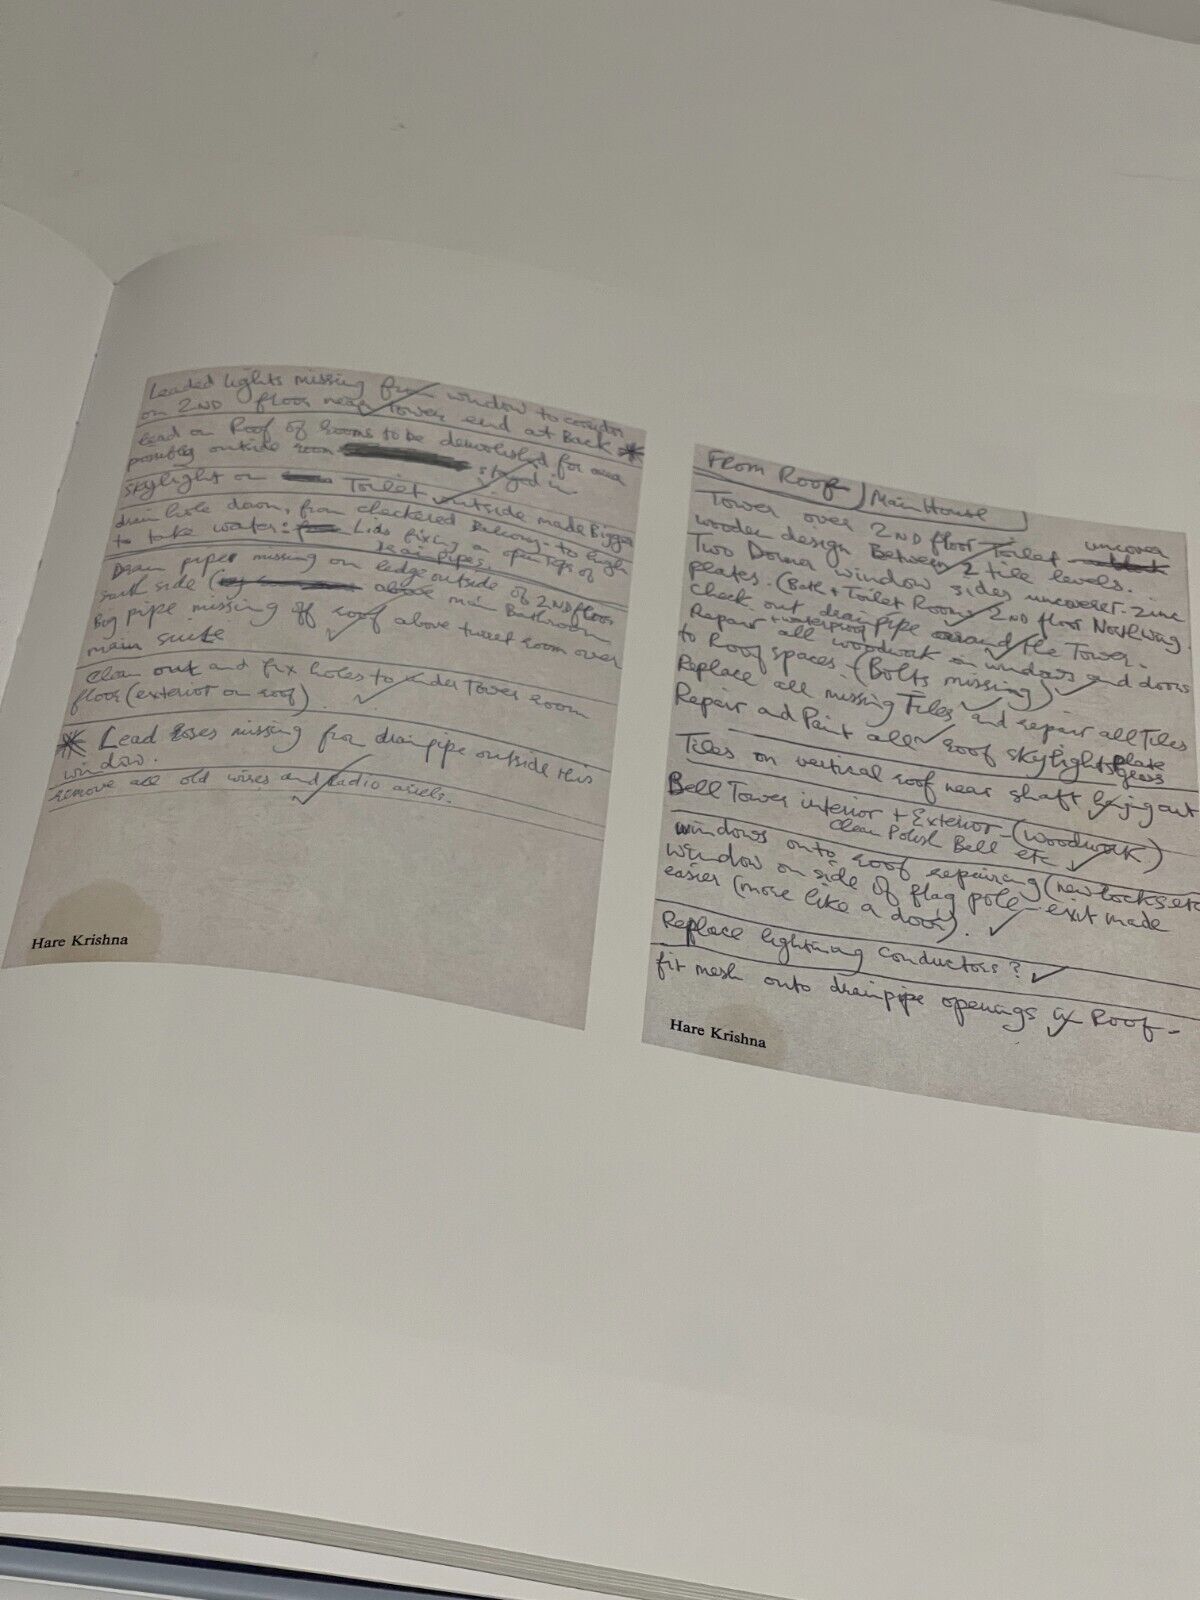 Leaded lights missing from window to corridor
on 2ND floor near Tower end at Back
lead on Roof of rooms to be demolished for area
possibly outside room stayed in
skylight on Toilet outside made Bigger
drain hole down, from checkered Balcony - to high
to take water: Lids fixing on open tops of
drain pipes.
Drain pipes missing on ledge outside of 2ND floor
South side ( above main Bathroom
Big pipe missing off roof above turret room over
main suite
Clean out and fix holes to under Tower room
floor (exterior on roof).
Lead roses missing from drainpipe outside this
window.
remove all old wires and radio ariels.
Hare Krishna
From Roof) Main House
Tower over 2ND floor Toilet uncover
wooden design Between 2 tile levels.
Two Dormer window sides uncover. Zinc
plates. (Bath + Toilet Rooms 2ND floor North wing.
check out drainpipe around the Tower.
Repair + waterproof all woodwork on windows and doors
to Roof spaces - (Bolts missing)
Replace all missing Tiles, and repair all Tiles
Repair and Paint all roof skylights plate
Tiles on vertical roof near shaft hanging out
Bell Tower interior + Exterior - (woodwork)
Clean Polish Bell etc
windows onto roof repairing (new locks etc
window on side of flag pole - exit made
easier (more like a door).
Replace lightning conductors?
fit mesh onto drainpipe openings on Roof -
Hare Krishna